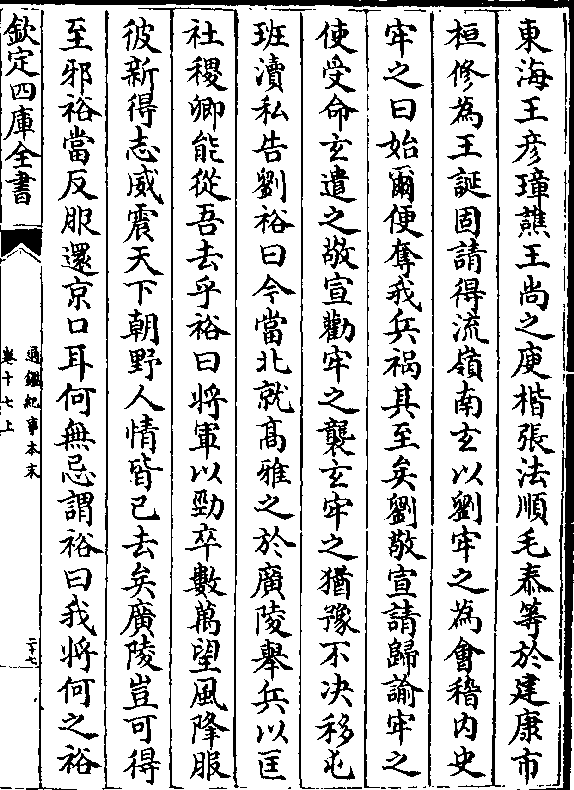 東海王彦璋譙王尚之庾楷張法順毛泰等於建康市
桓修為王誕固請得流嶺南𤣥以劉牢之為㑹稽内史
牢之曰始爾便奪我兵禍其至矣劉敬宣請歸諭牢之
使受命𤣥遣之敬宣勸牢之襲𤣥牢之猶豫不决移屯
班瀆私告劉裕曰今當北就髙雅之於廣陵舉兵以匡
社稷卿能從吾去乎裕曰將軍以勁卒數萬望風降服
彼新得志威震天下朝野人情皆已去矣廣陵豈可得
至邪裕當反服還京口耳何無忌謂裕曰我將何之裕
欽定四庫全書
通鑑紀事本末
卷十七上
二十七